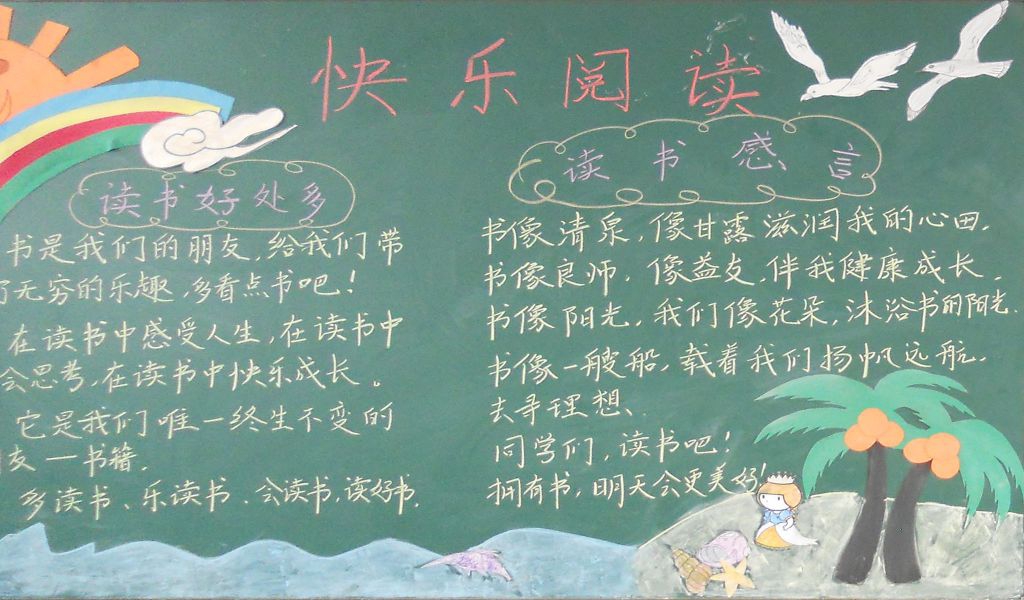 快乐阅读
读书好处多
书是我们的朋友,给我们带
无穷的乐趣,多看点书吧!
在读书中感受人生,在读书中
会思考,在读书中快乐成长。
它是我们唯一终生不变的
友一书籍.
多读书、乐读书、会读书,读好书.
读书感言
书像清泉,像甘露滋润我的心田.
书像良师,像益友,伴我健康成长,
书像阳光,我们像花朵,沐浴书的阳光.
书像一艘船,载着我们扬帆远航,
去寻理想、
同学们,读书吧!
拥有书,明天会更美好!